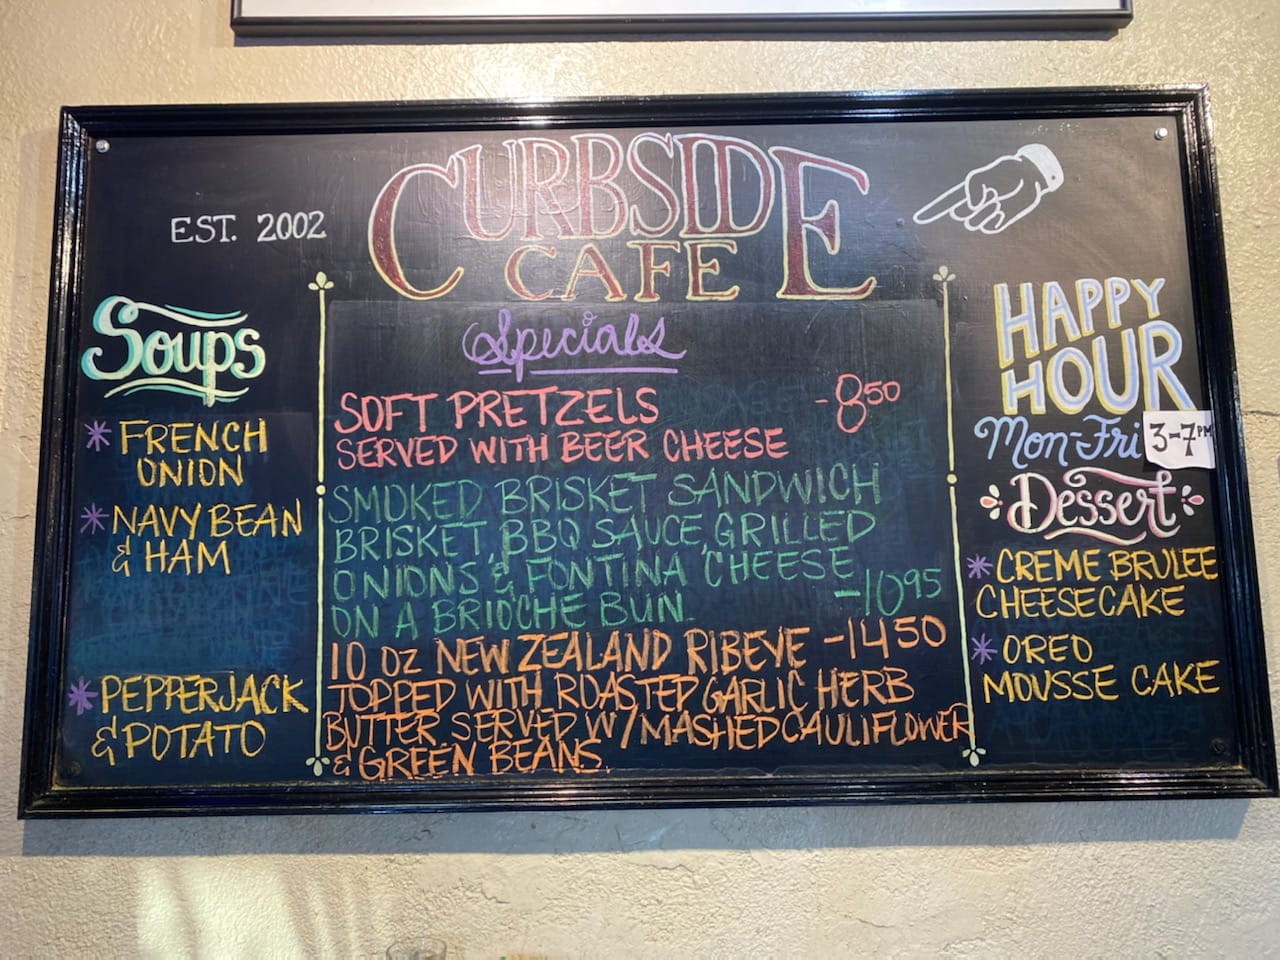 CURBSIDE
CAFE
EST. 2002
Soups
* FRENCH
ONION
* NAVY BEAN
& HAM
* PEPPERJACK
& POTATO
Specials
SOFT PRETZELS -8.50
SERVED WITH BEER CHEESE
SMOKED BRISKET SANDWICH
BRISKET, BBQ SAUCE, GRILLED
ONIONS & FONTINA CHEESE
ON A BRIOCHE BUN. -10 95
10 OZ NEW ZEALAND RIBEYE -14 50
TOPPED WITH ROASTED GARLIC HERB
BUTTER SERVED W/ MASHED CAULIFLOWER
& GREEN BEANS.
HAPPY
HOUR
Mon-Fri 3-7PM
Dessert
* CREME BRULEE
CHEESECAKE
* OREO
MOUSSE CAKE